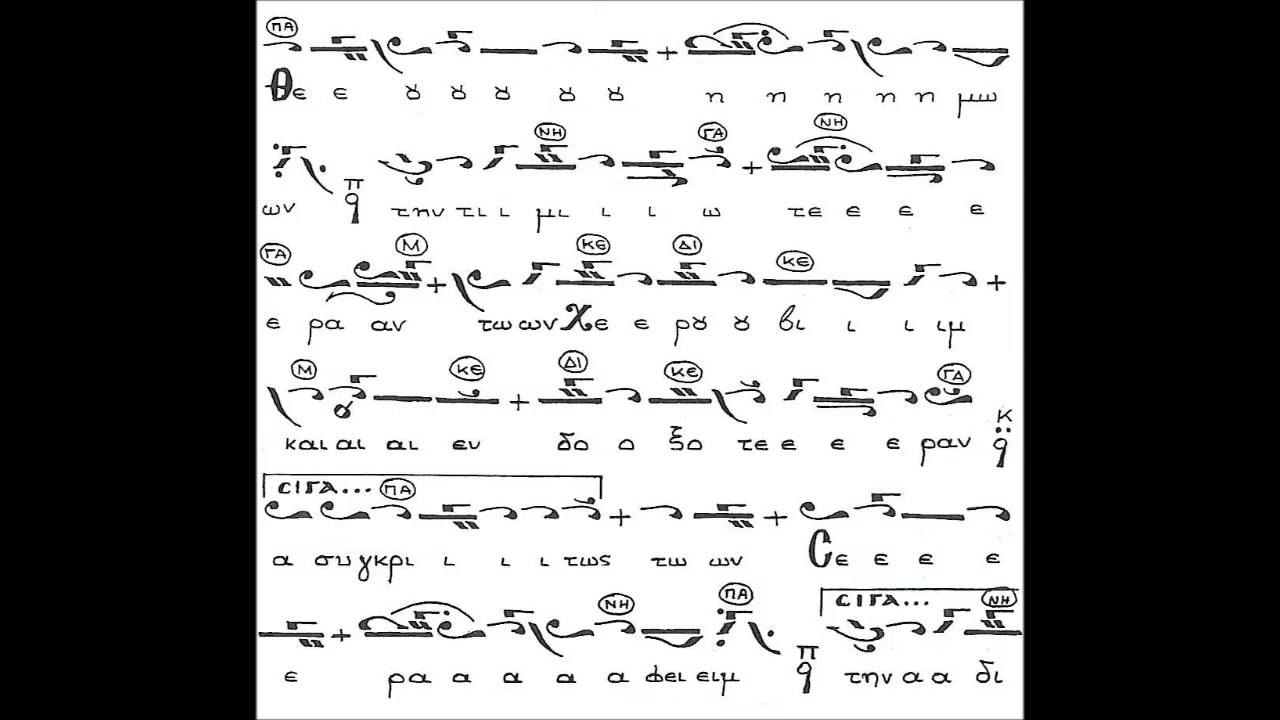 ΠΑ
Θε ε ȣ ȣ ȣ ȣ ȣ η η η η η μω
ΝΗ ΓΑ ΝΗ
ων π q την τι ι μι ι ι ω τε ε ε ε
ΓΑ Μ ΚΕ ΔΙ ΚΕ
ε ρα αν τω ων Χε ε ρȣ ȣ βι ι ι ιμ
Μ ΚΕ ΔΙ ΚΕ ΓΑ
και αι αι εν δο ο ξο τε ε ε ε ραν Κ q
CΙΓΑ... ΠΑ
α συ γκρι ι ι ι τως τω ων Cε ε ε ε
ΝΗ ΠΑ CΙΓΑ... ΝΗ
ε ρα α α α α φει ειμ π q την α α δι